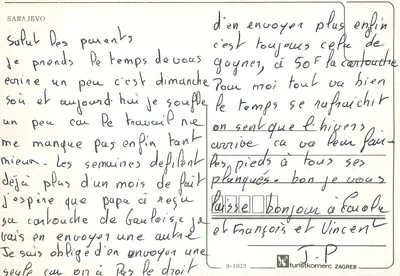 SARAJEVO
Salut les parents
je prends le temps de vous
ecrire un peu c'est dimanche
soir et aujourd'hui je souffle
un peu car le travail ne
me manque pas enfin tant
mieux. Les semaines defilent
déjà plus d'un mois de fait
j'espire que papa à reçu
sa cartouche de Gauloise je
vais en envoyer une autre
Je suis obligé d'en envoyer une
seule car on à pas le droit
d'en envoyer plus enfin
c'est toujours cela de
gagner, à 50F la cartouche
Pour moi tout va bien
le temps se rafraichit
on sent que l'hivers
arrive ça va leur fair-
les pieds à tous ses
planqués. bon je vous
laisse bonjour à Carole
et François et Vincent
J.P
S-1023 turistkomerc ZAGREB